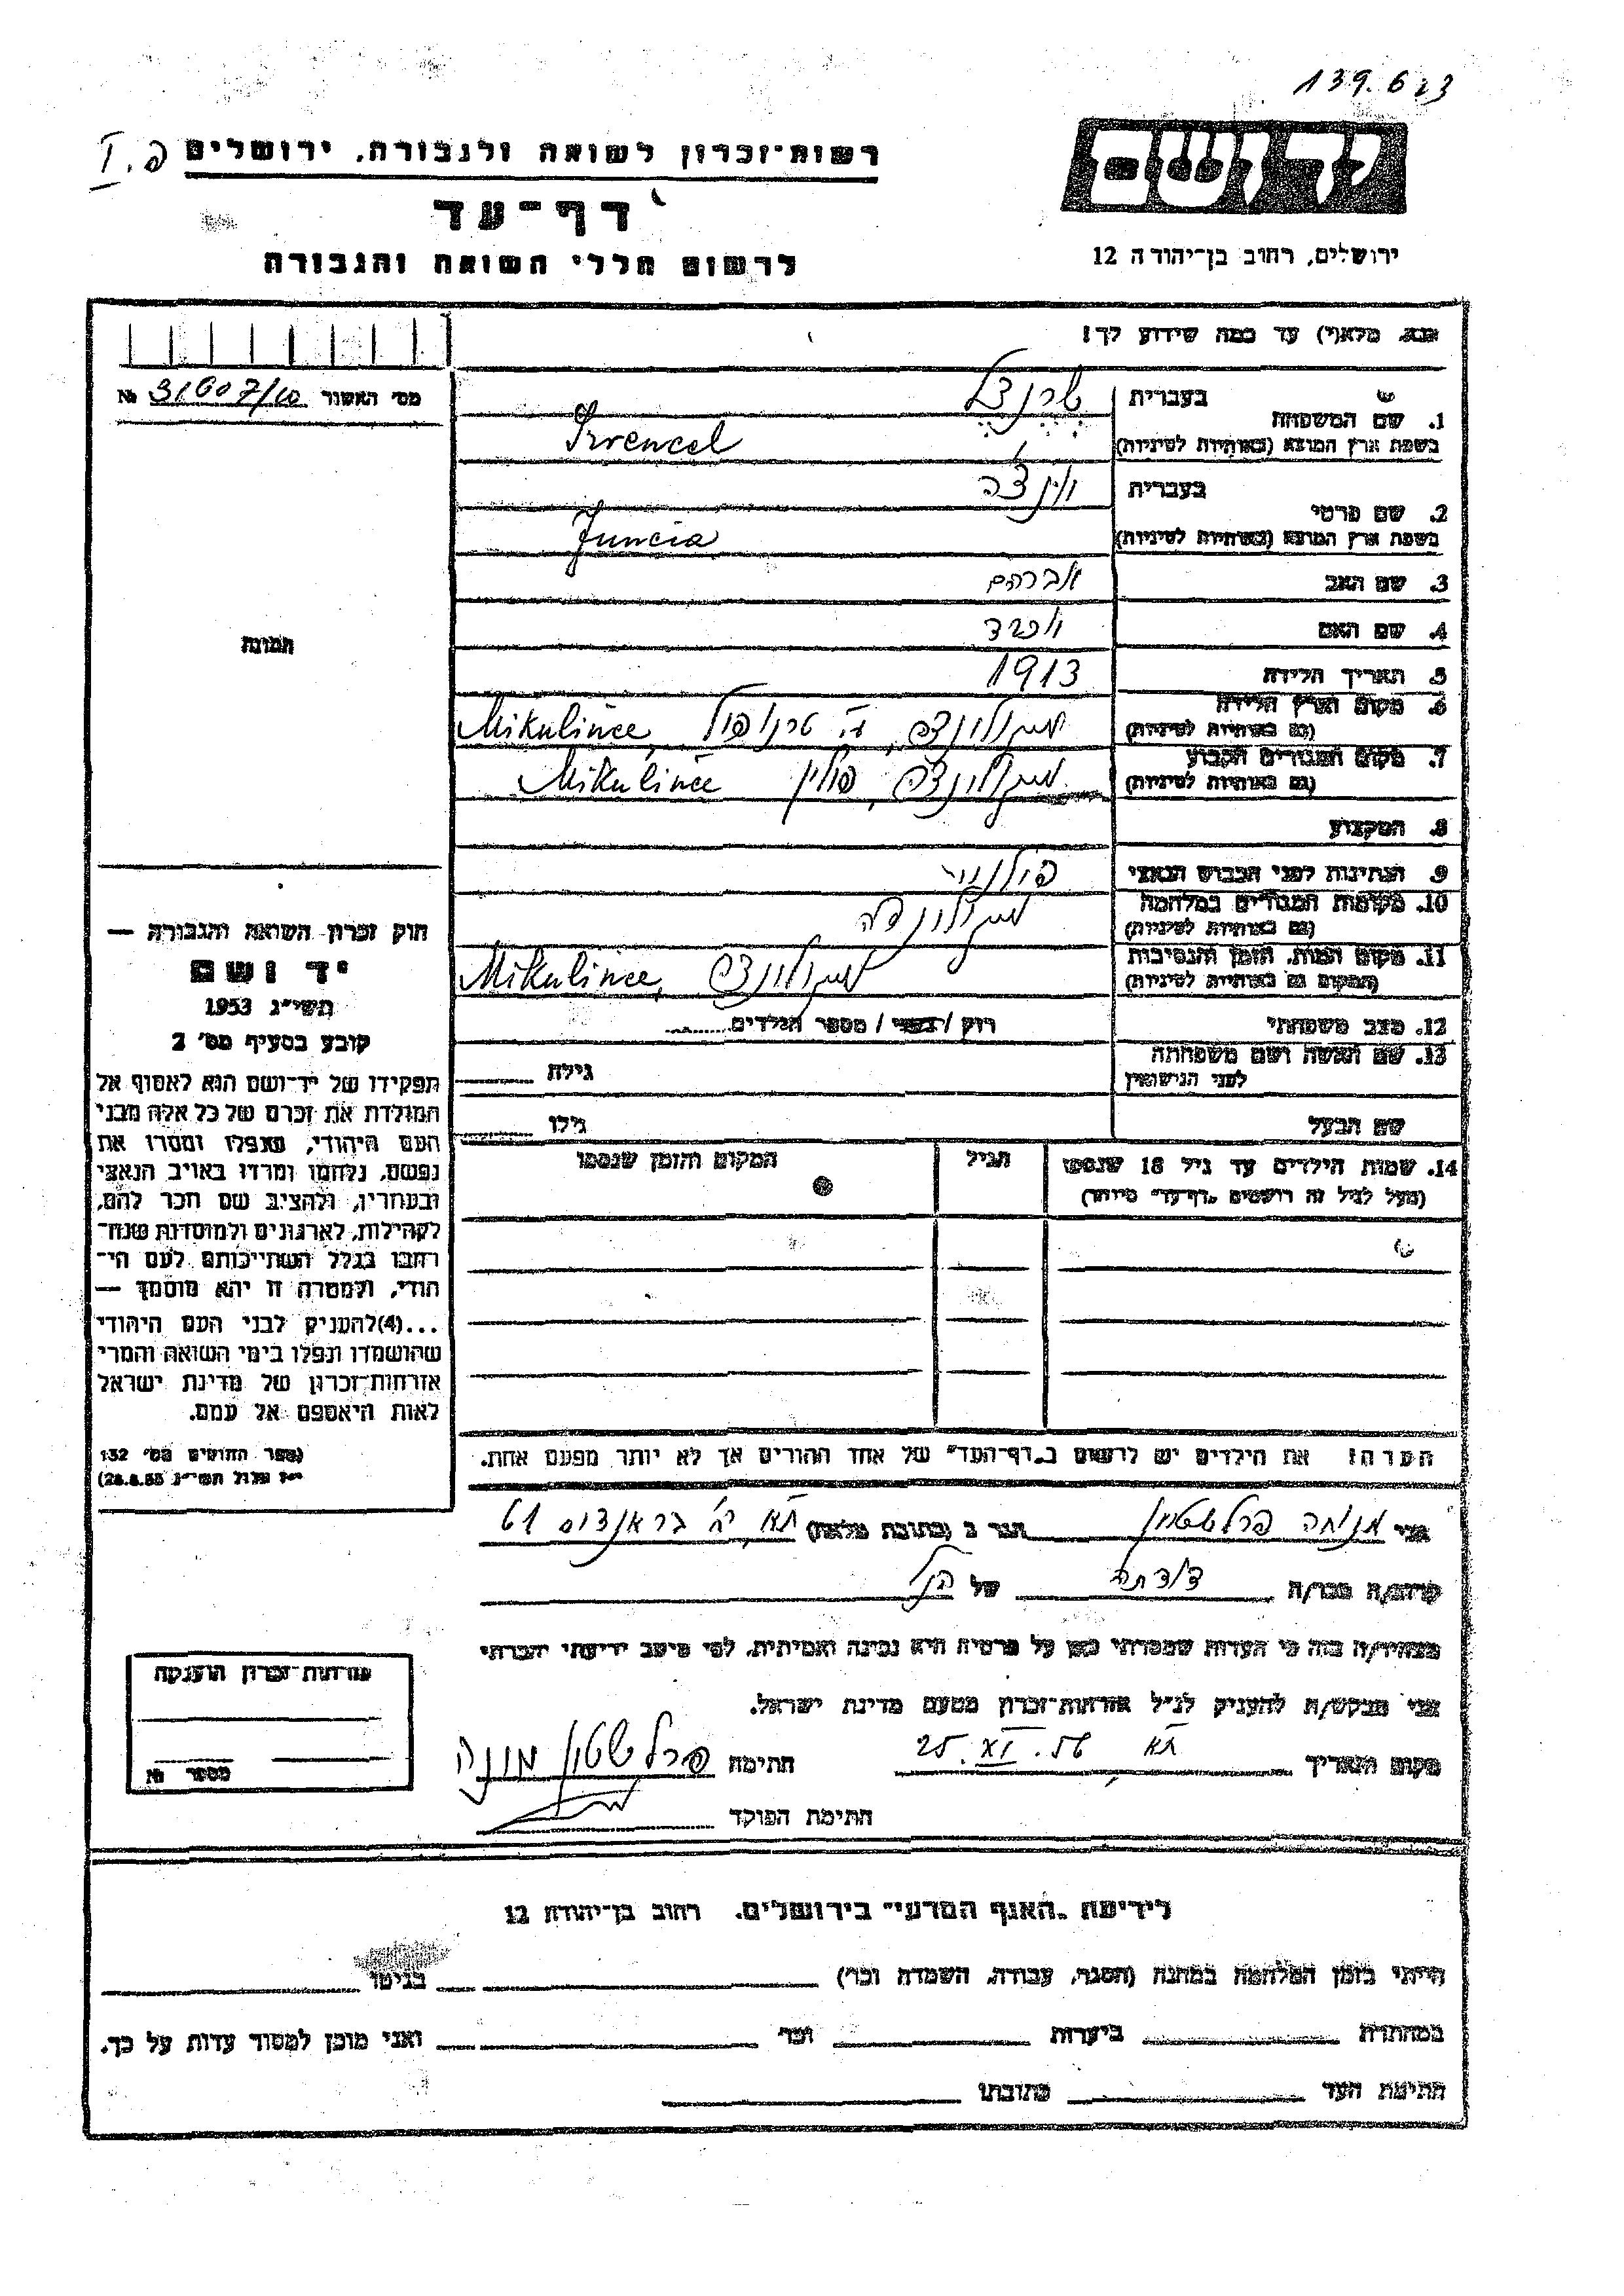 139.6 23
יד ושם
רשות־זכרון לשואה ולגבורה, ירושלים
פ. I
דף־עד
ירושלים, רחוב בן־יהודה 12
לרשום חללי השואה והגבורה
אנא, מלא(י) עד כמה שידוע לך!
מס׳ האשור 31607/10 №
בעברית
1. שם המשפחה
בשפת ארץ המוצא (באותיות לטיניות)
בעברית
2. שם פרטי
בשפת ארץ המוצא (באותיות לטיניות) Juncia
3. שם האב אברהם
4. שם האם
5. תאריך הלידה 1913
6. מקום וארץ הלידה
(גם באותיות לטיניות) טרנופול Mikulince,
7. מקום המגורים הקבוע
(גם באותיות לטיניות) פולין Mikulince
8. המקצוע
9. הנתינות לפני הכבוש הנאצי
10. מקומות המגורים במלחמה
(גם באותיות לטיניות)
11. מקום המות, הזמן והנסיבות
(המקום גם באותיות לטיניות) Mikulince,
12. מצב משפחתי רווק / נשוי / מספר הילדים
13. שם האשה ושם משפחתה
לפני הנישואין גילה
שם הבעל גילו
14. שמות הילדים עד גיל 18 שנספו הגיל המקום והזמן שנספו
(מעל לגיל זה רושמים „דף־עד" מיוחד)
הערה: את הילדים יש לרשום ב„דף־העד" של אחד ההורים אך לא יותר מפעם אחת.
תמונה
חוק זכרון השואה והגבורה —
יד ושם
תשי״ג 1953
קובע בסעיף מס׳ 2
תפקידו של יד־ושם הוא לאסוף אל
המולדת את זכרם של כל אלה מבני
העם היהודי, שנפלו ומסרו את
נפשם, נלחמו ומרדו באויב הנאצי
ובעוזריו, ולהציב שם וזכר להם,
לקהילות, לארגונים ולמוסדות שנח־
רבו בגלל השתייכותם לעם הי־
הודי, ולמטרה זו יהא מוסמך —
...(4)להעניק לבני העם היהודי
שהושמדו ונפלו בימי השואה והמרי
אזרחות־זכרון של מדינת ישראל
לאות היאספם אל עמם.
(ספר החוקים מס׳ 132
י״ז אלול תשי״ג 28.8.53)
אני מנוחה פרלשטיין הגר ב (כתובת מלאה) ת״א, בראנדיס 61
קרוב/ה מכר/ה דודתה של הנ״ל
מצהיר/ה בזה כי העדות שמסרתי כאן על פרטיה היא נכונה ואמיתית, לפי מיטב ידיעתי והכרתי
אני מבקש/ת להעניק לנ״ל אזרחות־זכרון מטעם מדינת ישראל.
מקום ותאריך ת״א 25.XI.56 חתימה
חתימת הפוקד
אזרחות־זכרון הוענקה
מספר №
לידיעת „האגף המדעי" בירושלים, רחוב בן־יהודה 12
הייתי בזמן המלחמה במחנה (הסגר, עבודה, השמדה וכו׳) בגיטו
במחתרת ביערות וכו׳ ואני מוכן למסור עדות על כך.
חתימת העד כתובתו